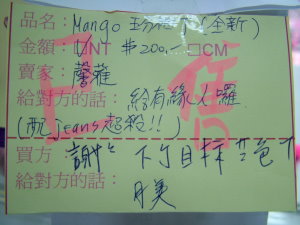 品名：Mango (全新)
金額：☑NT $200.- □CM
賣家：馨雅
給對方的話：給有緣人囉
(配jeans超殺!!)
買方 謝謝 下了目標
給對方的話：
月美
已售